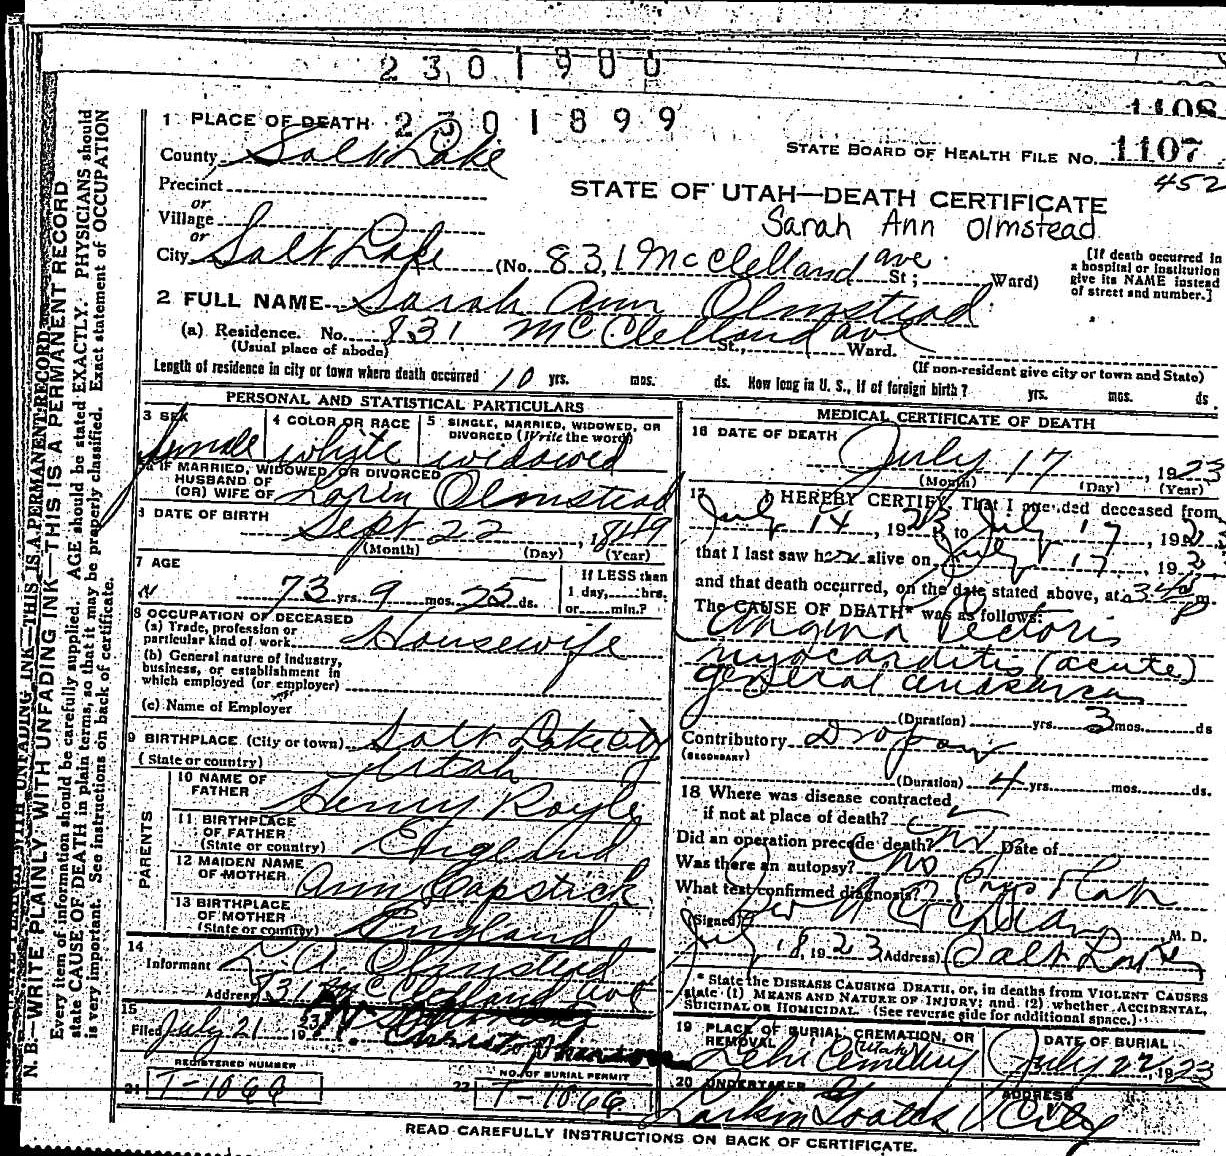 2301900
1108
1 PLACE OF DEATH 2301899
County Salt Lake
STATE BOARD OF HEALTH FILE No. 1107
452
Precinct
or
STATE OF UTAH—DEATH CERTIFICATE
Village
Sarah Ann Olmstead
or
City Salt Lake (No. 831 McClelland ave St; Ward)
[If death occurred in
a hospital or institution
give its NAME instead
of street and number.]
2 FULL NAME Sarah Ann Olmstead
(a) Residence. No. 831 McClelland ave St., Ward.
(Usual place of abode) (If non-resident give city or town and State)
Length of residence in city or town where death occurred 10 yrs. mos. ds. How long in U. S., if of foreign birth? yrs. mos. ds.
PERSONAL AND STATISTICAL PARTICULARS
3 SEX female
4 COLOR OR RACE white
5 SINGLE, MARRIED, WIDOWED, OR
DIVORCED (Write the word)
widowed
IF MARRIED, WIDOWED, OR DIVORCED
HUSBAND OF
(OR) WIFE OF Loren Olmstead
DATE OF BIRTH Sept 22, 1849
(Month) (Day) (Year)
7 AGE
73 yrs. 9 mos. 25 ds.
If LESS than
1 day, hrs.
or min.?
8 OCCUPATION OF DECEASED
(a) Trade, profession or
particular kind of work Housewife
(b) General nature of industry,
business, or establishment in
which employed (or employer)
(c) Name of Employer
9 BIRTHPLACE (City or town) Salt Lake City
(State or country) Utah
PARENTS
10 NAME OF
FATHER Henry Royle
11 BIRTHPLACE
OF FATHER
(State or country) England
12 MAIDEN NAME
OF MOTHER Ann Capstick
13 BIRTHPLACE
OF MOTHER
(State or country) England
14
Informant L. A. Olmstead
Address 831 McClelland ave
15
Filed July 21
REGISTERED NUMBER
21 T-1066
NO. OF BURIAL PERMIT
22 T-1066
MEDICAL CERTIFICATE OF DEATH
16 DATE OF DEATH
July 17, 1923
(Month) (Day) (Year)
17 I HEREBY CERTIFY, That I attended deceased from
July 14, 1923 to July 17, 192
that I last saw her alive on July 17, 192
and that death occurred, on the date stated above, at m.
The CAUSE OF DEATH* was as follows:
Angina Pectoris
myocarditis (acute)
general anasarca
(Duration) yrs. 3 mos. ds
Contributory Dropsy
(SECONDARY)
(Duration) 4 yrs. mos. ds.
18 Where was disease contracted
if not at place of death?
Did an operation precede death? no Date of
Was there an autopsy? no
What test confirmed diagnosis?
(Signed) M. D.
July 18, 1923 (Address) Salt Lake
* State the DISEASE CAUSING DEATH, or, in deaths from VIOLENT CAUSES
state (1) MEANS AND NATURE OF INJURY; and (2) whether ACCIDENTAL,
SUICIDAL OR HOMICIDAL. (See reverse side for additional space.)
19 PLACE OF BURIAL, CREMATION, OR
REMOVAL
Lehi Cemetery (Utah)
DATE OF BURIAL
July 22, 1923
20 UNDERTAKER
Larkin
ADDRESS
City
READ CAREFULLY INSTRUCTIONS ON BACK OF CERTIFICATE.
N. B.—WRITE PLAINLY WITH UNFADING INK—THIS IS A PERMANENT RECORD
Every item of information should be carefully supplied. AGE should be stated EXACTLY. PHYSICIANS should
state CAUSE OF DEATH in plain terms, so that it may be properly classified. Exact statement of OCCUPATION
is very important. See instructions on back of certificate.